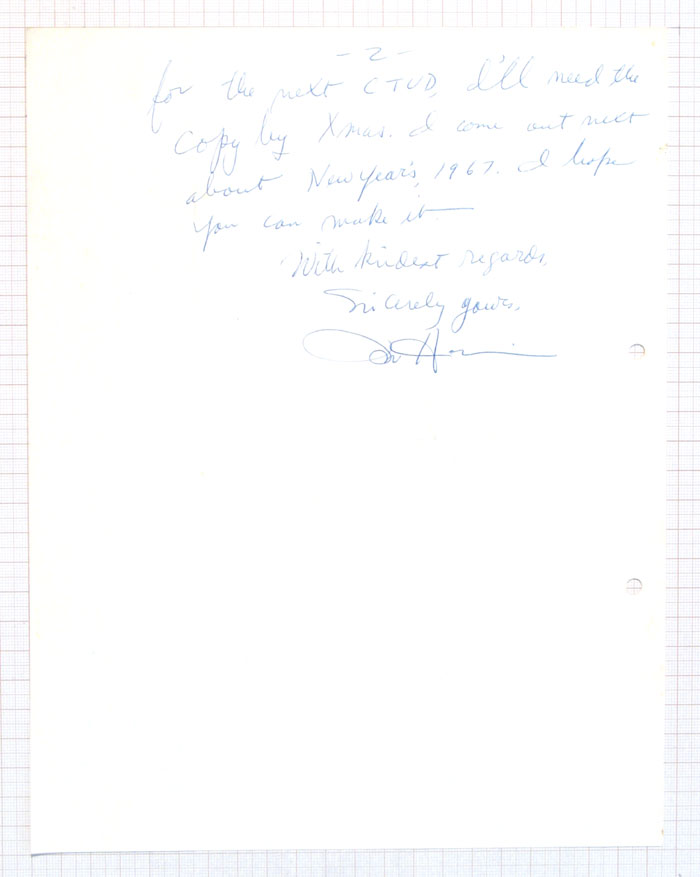 - 2 -
for the next CTVD, I'll need the
copy by Xmas. I come out next
about New Year's, 1967. I hope
you can make it.
With kindest regards,
Sincerely yours,